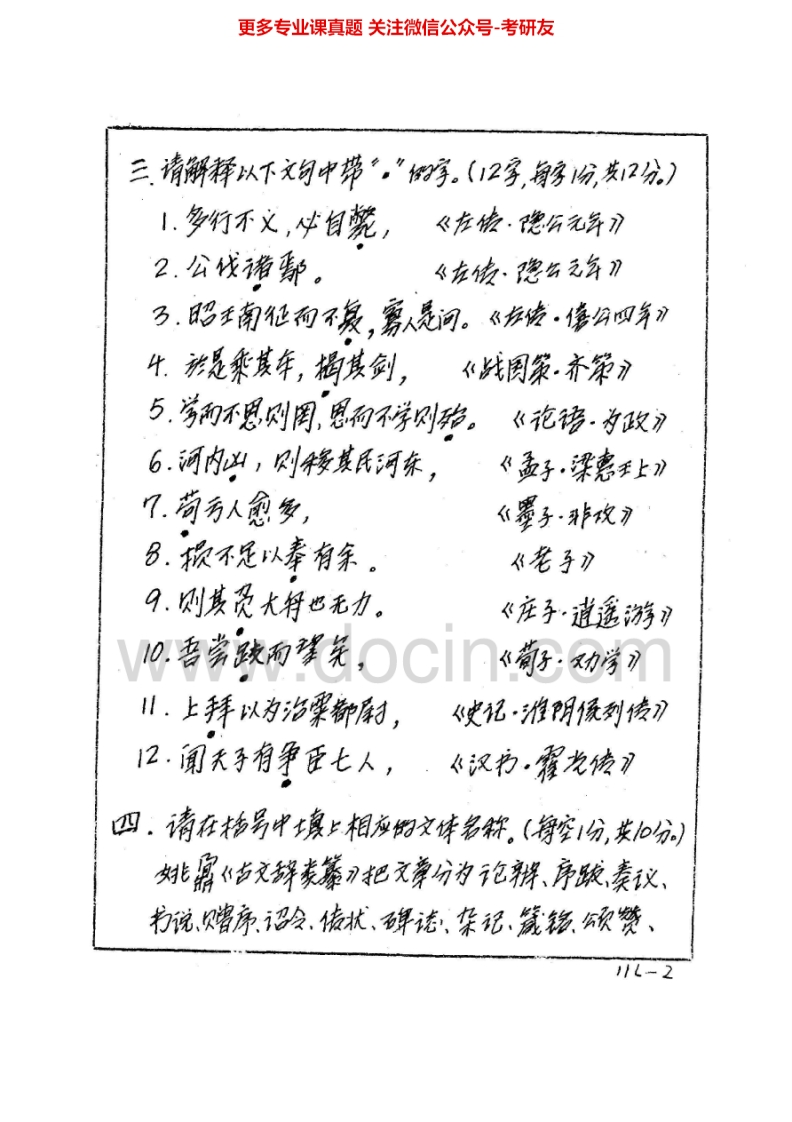 更多专业课真题 关注微信公众号-考研友
三.请解释以下文句中带“·”的字。(12字,每字1分,共12分。)
1.多行不义,必自毙, 《左传·隐公元年》
2.公伐诸鄢。 《左传·隐公元年》
3.昭王南征而不复,寡人是问。《左传·僖公四年》
4.於是乘其车,揭其剑, 《战国策·齐策》
5.学而不思则罔,思而不学则殆。 《论语·为政》
6.河内凶,则移其民河东, 《孟子·梁惠王上》
7.苟亏人愈多, 《墨子·非攻》
8.损不足以奉有余。 《老子》
9.则其负大舟也无力。 《庄子·逍遥游》
www.docin.com
10.吾尝跂而望矣, 《荀子·劝学》
11.上拜以为治粟都尉, 《史记·淮阴侯列传》
12.闻天子有争臣七人, 《汉书·霍光传》
四.请在括号中填上相应的文体名称。(每空1分,共10分。)
姚鼐《古文辞类纂》把文章分为论辨、序跋、奏议、
书说、赠序、诏令、传状、碑志、杂记、箴铭、颂赞、
116-2